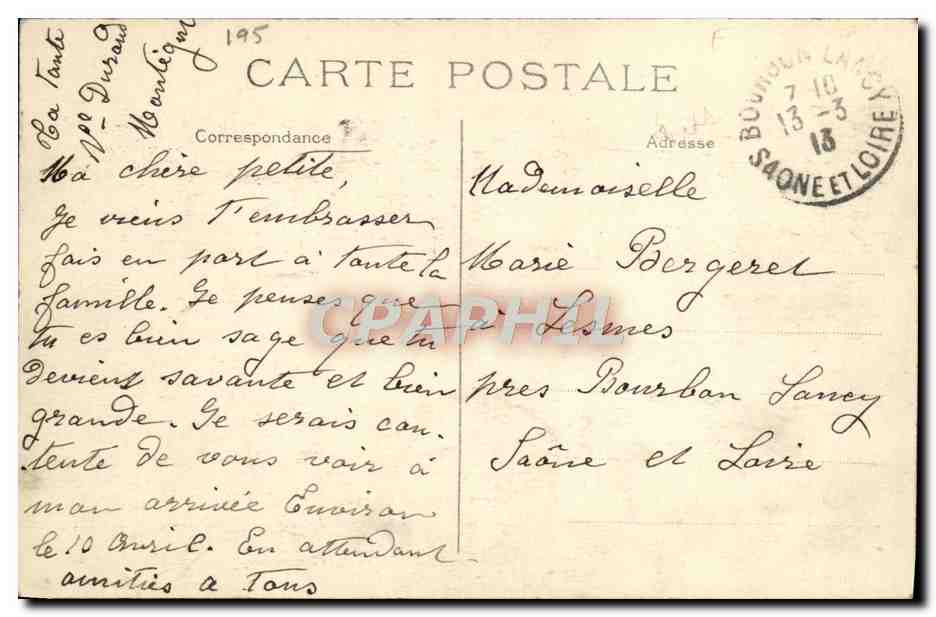 195
F
CARTE POSTALE
Correspondance
Adresse
Ta Tante
Vve Durand
Montégny
Ma chère petite,
Je viens T'embrasser
fais en part à toute la
famille. Je penses que
tu es bien sage que tu
devient savante et bien
grande. Je serais con-
tente de vous voir à
mon arrivée Environ
le 10 Avril. En attendant
amitiés a Tous
Mademoiselle
Marie Bergeret
à Lesmes
pres Bourbon Lancy
Saône et Loire
BOURBON LANCY
7 10
13 -3
13
SAONE ET LOIRE
CPAPHIL